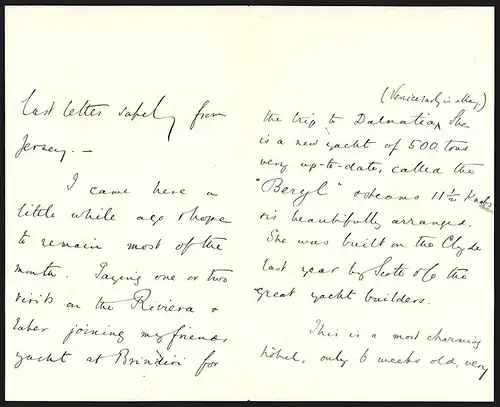 last letter safely from
Jersey. —
I came here a
little while ago & hope
to remain most of the
month. Paying one or two
visits on the Riviera &
later joining my friends
yacht at Brindisi for
(Venice early in May.)
the trip to Dalmatia. She
is a new yacht of 500 tons
very up-to-date, called the
"Beryl" & steams 11 1/2 Knots
& is beautifully arranged.
She was built on the Clyde
last year by Scott & Co the
great yacht builders.
This is a most charming
hôtel, only 6 weeks old, very